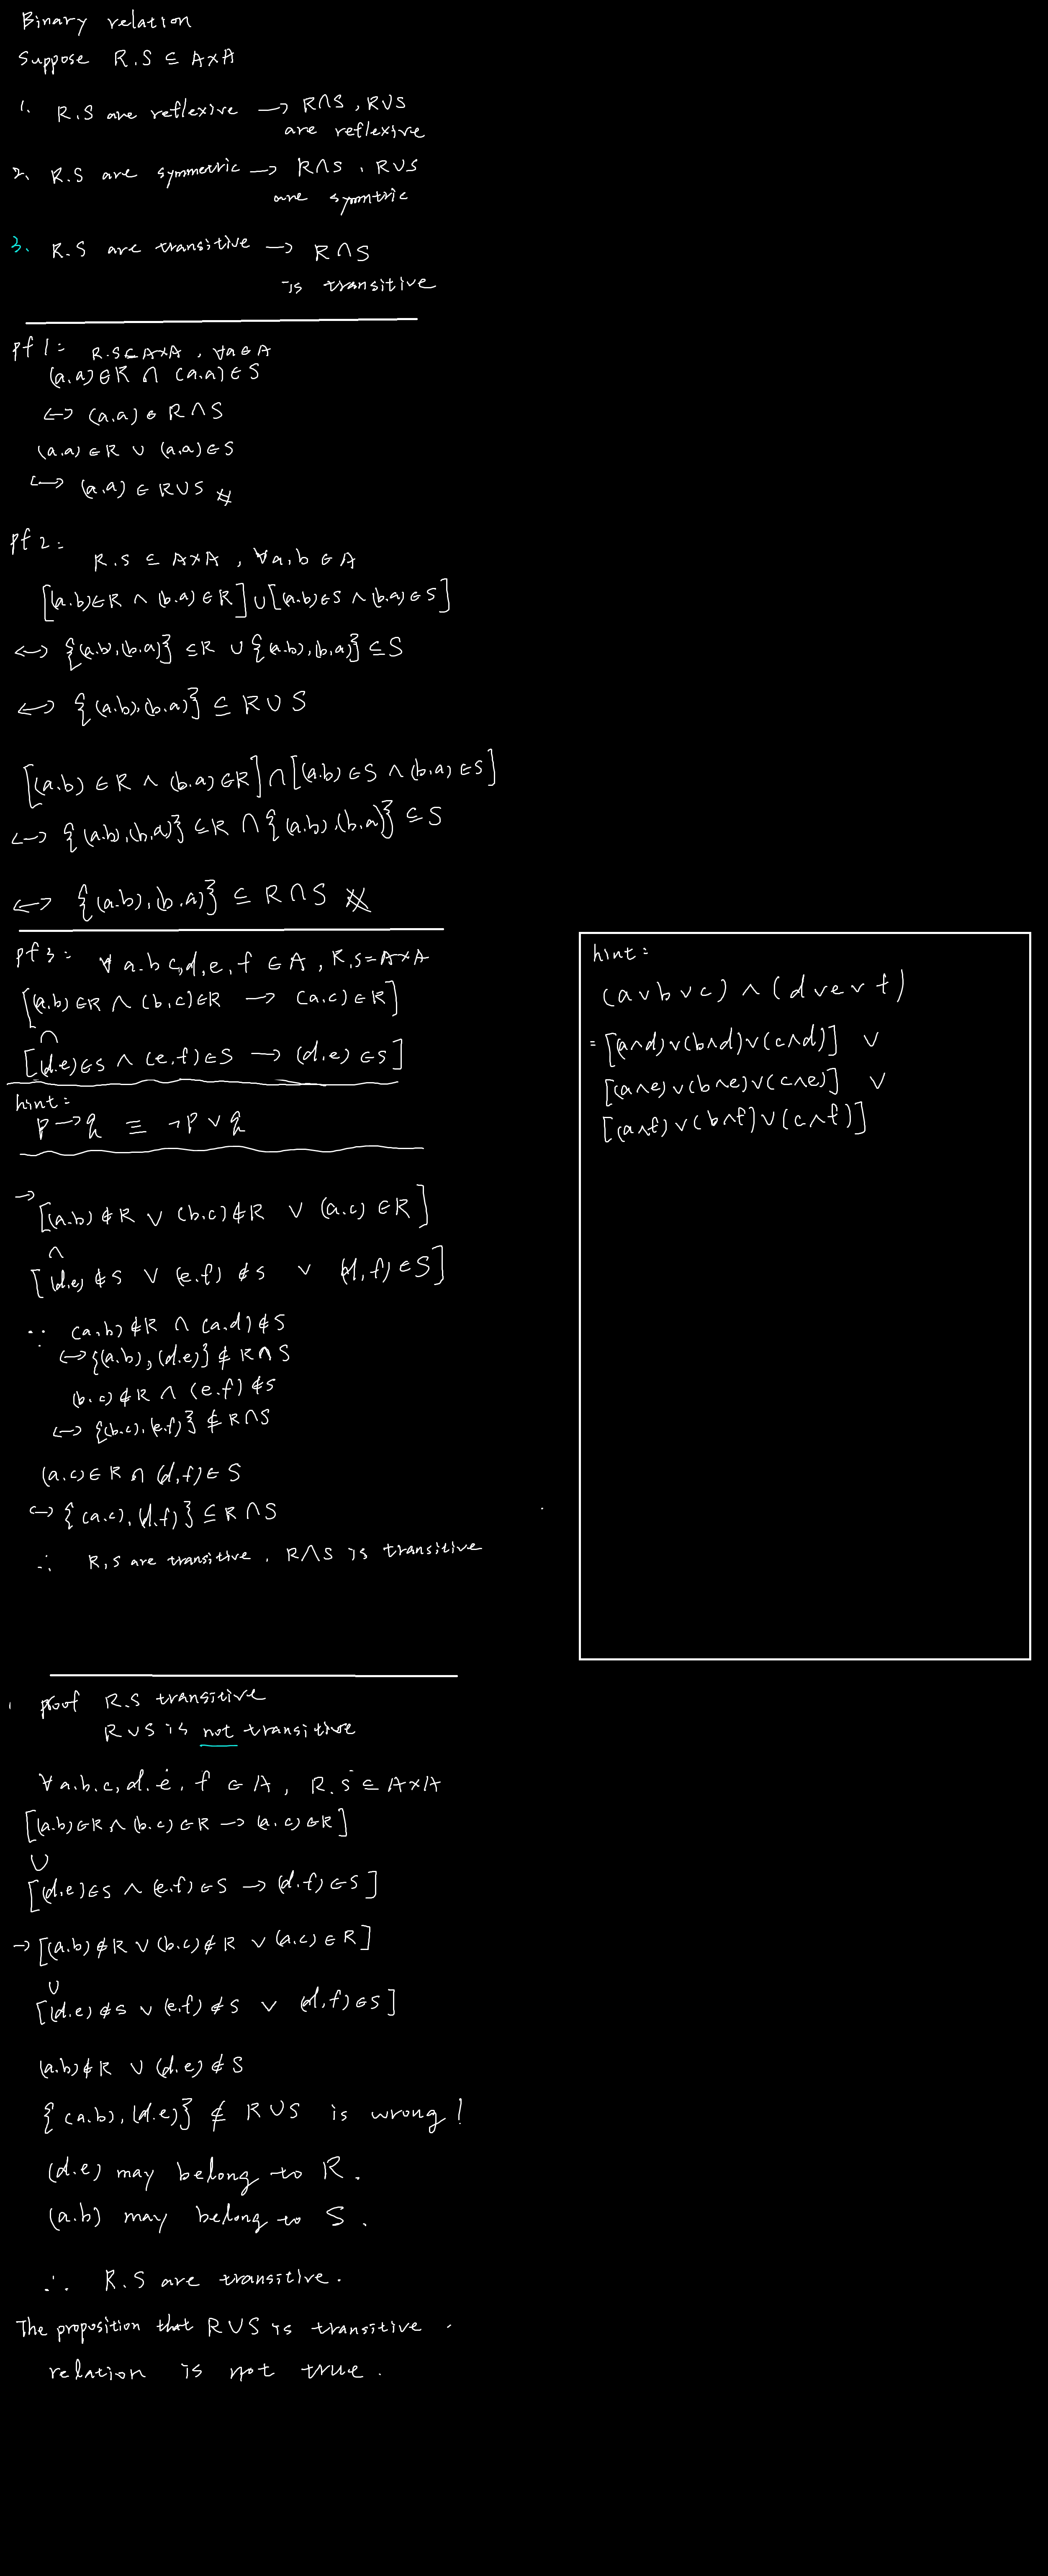 Binary relation
Suppose R.S ⊆ A×A
1. R.S are reflexive → R∩S , R∪S
are reflexive
2. R.S are symmetric → R∩S , R∪S
are symntric
3. R.S are transitive → R∩S
is transitive
pf 1: R.S⊆A×A , ∀a∈A
(a.a)∈R ∩ (a.a)∈S
↔ (a.a)∈R∩S
(a.a)∈R ∪ (a.a)∈S
↔ (a.a)∈R∪S #
pf 2:
R.S ⊆ A×A , ∀a,b ∈ A
[(a.b)∈R ∧ (b.a)∈R]∪[(a.b)∈S ∧ (b.a)∈S]
↔ {(a.b),(b.a)} ⊆R ∪ {(a.b),(b.a)} ⊆S
↔ {(a.b),(b.a)} ⊆ R∪S
[(a.b)∈R ∧ (b.a)∈R]∩[(a.b)∈S ∧ (b.a)∈S]
↔ {(a.b),(b.a)} ⊆R ∩{(a.b),(b.a)} ⊆S
↔ {(a.b),(b.a)} ⊆ R∩S #
pf 3: ∀ a.b c,d,e,f ∈A , R,S=A×A
[(a.b)∈R ∧ (b,c)∈R → (a.c)∈R]
∩
[(d.e)∈S ∧ (e,f)∈S → (d.e)∈S]
hint:
p→q ≡ ¬p∨q
→
[(a.b)∉R ∨ (b.c)∉R ∨ (a.c)∈R]
∧
[(d.e)∉S ∨ (e.f)∉S ∨ (d,f)∈S]
∵ (a.b)∉R ∩ (a.d)∉S
↔{(a.b),(d.e)} ⊄ R∩S
(b.c)∉R ∧ (e.f)∉S
↔ {(b.c),(e.f)} ⊄ R∩S
(a.c)∈R ∩ (d,f)∈S
↔ {(a.c),(d.f)} ⊆ R∩S
∴ R,S are transitive , R∩S is transitive
hint:
(a∨b∨c)∧(d∨e∨f)
=[(a∧d)∨(b∧d)∨(c∧d)] ∨
[(a∧e)∨(b∧e)∨(c∧e)] ∨
[(a∧f)∨(b∧f)∨(c∧f)]
proof R.S transitive
R∪S is not transitive
∀a.b.c,d.e,f ∈A , R.S⊆A×A
[(a.b)∈R∧(b.c)∈R → (a.c)∈R]
∪
[(d.e)∈S ∧(e.f)∈S → (d.f)∈S]
→[(a.b)∉R∨(b.c)∉R ∨(a.c)∈R]
∪
[(d.e)∉S ∨(e.f)∉S ∨ (d,f)∈S]
(a.b)∉R ∪ (d.e)∉S
{(a.b),(d.e)} ⊄ R∪S is wrong!
(d.e) may belong to R.
(a.b) may belong to S.
∴ R.S are transitive.
The proposition that R∪S is transitive .
relation is not true.